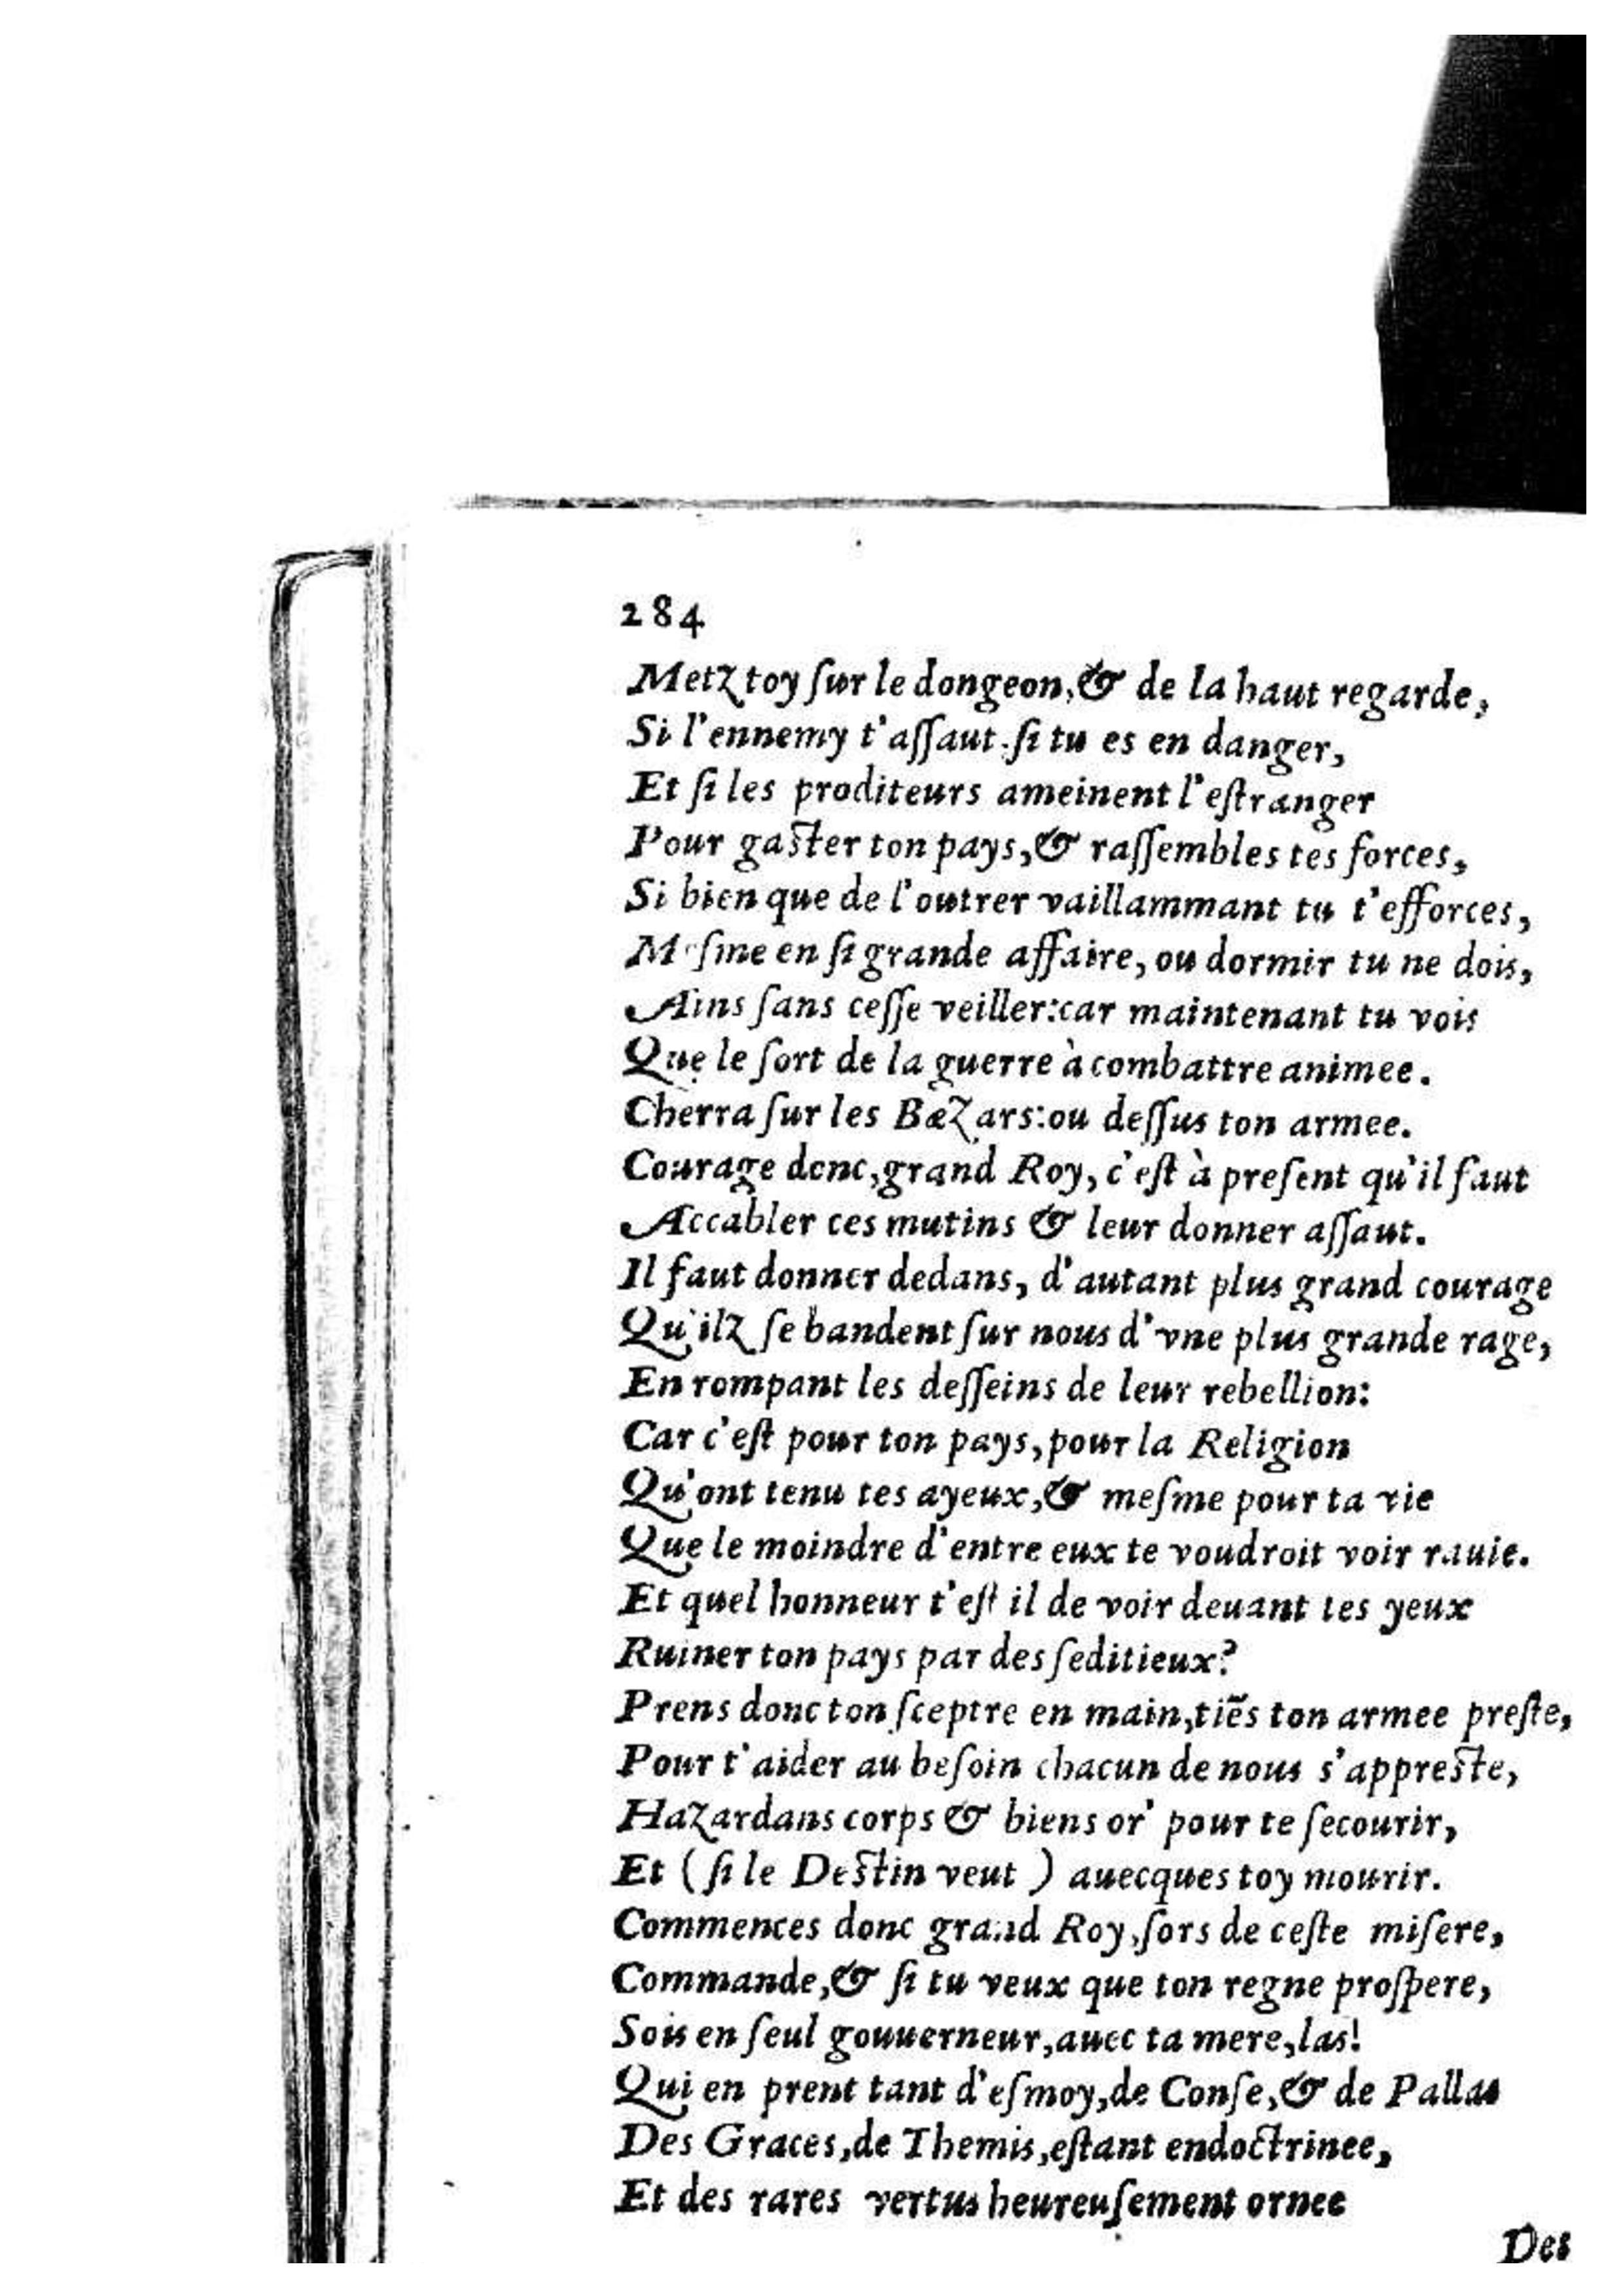 284
Metz toy ſur le dongeon, & de la haut regarde,
Si l'ennemy t'aſſaut. ſi tu es en danger,
Et ſi les proditeurs ameinent l'eſtranger
Pour gaſter ton pays, & raſſembles tes forces,
Si bien que de l'outrer vaillammant tu t'efforces,
Meſme en ſi grande affaire, ou dormir tu ne dois,
Ains ſans ceſſe veiller: car maintenant tu vois
Que le ſort de la guerre à combattre animee.
Cherra ſur les Bæzars: ou deſſus ton armee.
Courage donc, grand Roy, c'eſt à preſent qu'il faut
Accabler ces mutins & leur donner aſſaut.
Il faut donner dedans, d'autant plus grand courage
Qu'ilz ſe bandent ſur nous d'vne plus grande rage,
En rompant les deſſeins de leur rebellion:
Car c'eſt pour ton pays, pour la Religion
Qu'ont tenu tes ayeux, & meſme pour ta vie
Que le moindre d'entre eux te voudroit voir rauie.
Et quel honneur t'eſt il de voir deuant tes yeux
Ruiner ton pays par des ſeditieux?
Prens donc ton ſceptre en main, tiẽs ton armee preſte,
Pour t'aider au beſoin chacun de nous s'appreſte,
Hazardans corps & biens or' pour te ſecourir,
Et (ſi le Deſtin veut) auecques toy mourir.
Commences donc grand Roy, ſors de ceſte miſere,
Commande, & ſi tu veux que ton regne proſpere,
Sois en ſeul gouuerneur, auec ta mere, las!
Qui en prent tant d'eſmoy, de Conſe, & de Pallas
Des Graces, de Themis, eſtant endoctrinee,
Et des rares vertus heureuſement ornee
Des